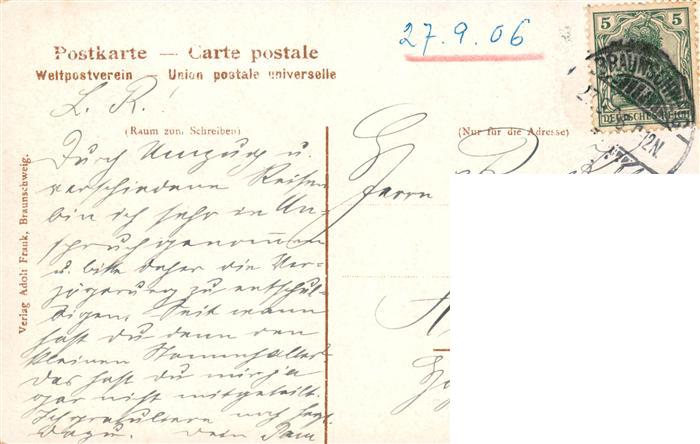 Postkarte — Carte postale
Weltpostverein — Union postale universelle
27.9.06
5 5
DEUTSCHES REICH
BRAUNSCHW
12N.
L. R.!
(Raum zum Schreiben)
(Nur für die Adresse)
Durch Umzug u.
verschiedene Reisen
bin ich sehr in An-
spruch genommen
u. bitte daher die Ver-
zögerung zu entschul-
digen. Seit wann
hast du denn den
kleinen Stammhalter
das hast du mir ja
gar nicht mitgeteilt.
Ich gratuliere noch
dazu. Dein
Herrn
Verlag Adolf Frank, Braunschweig.